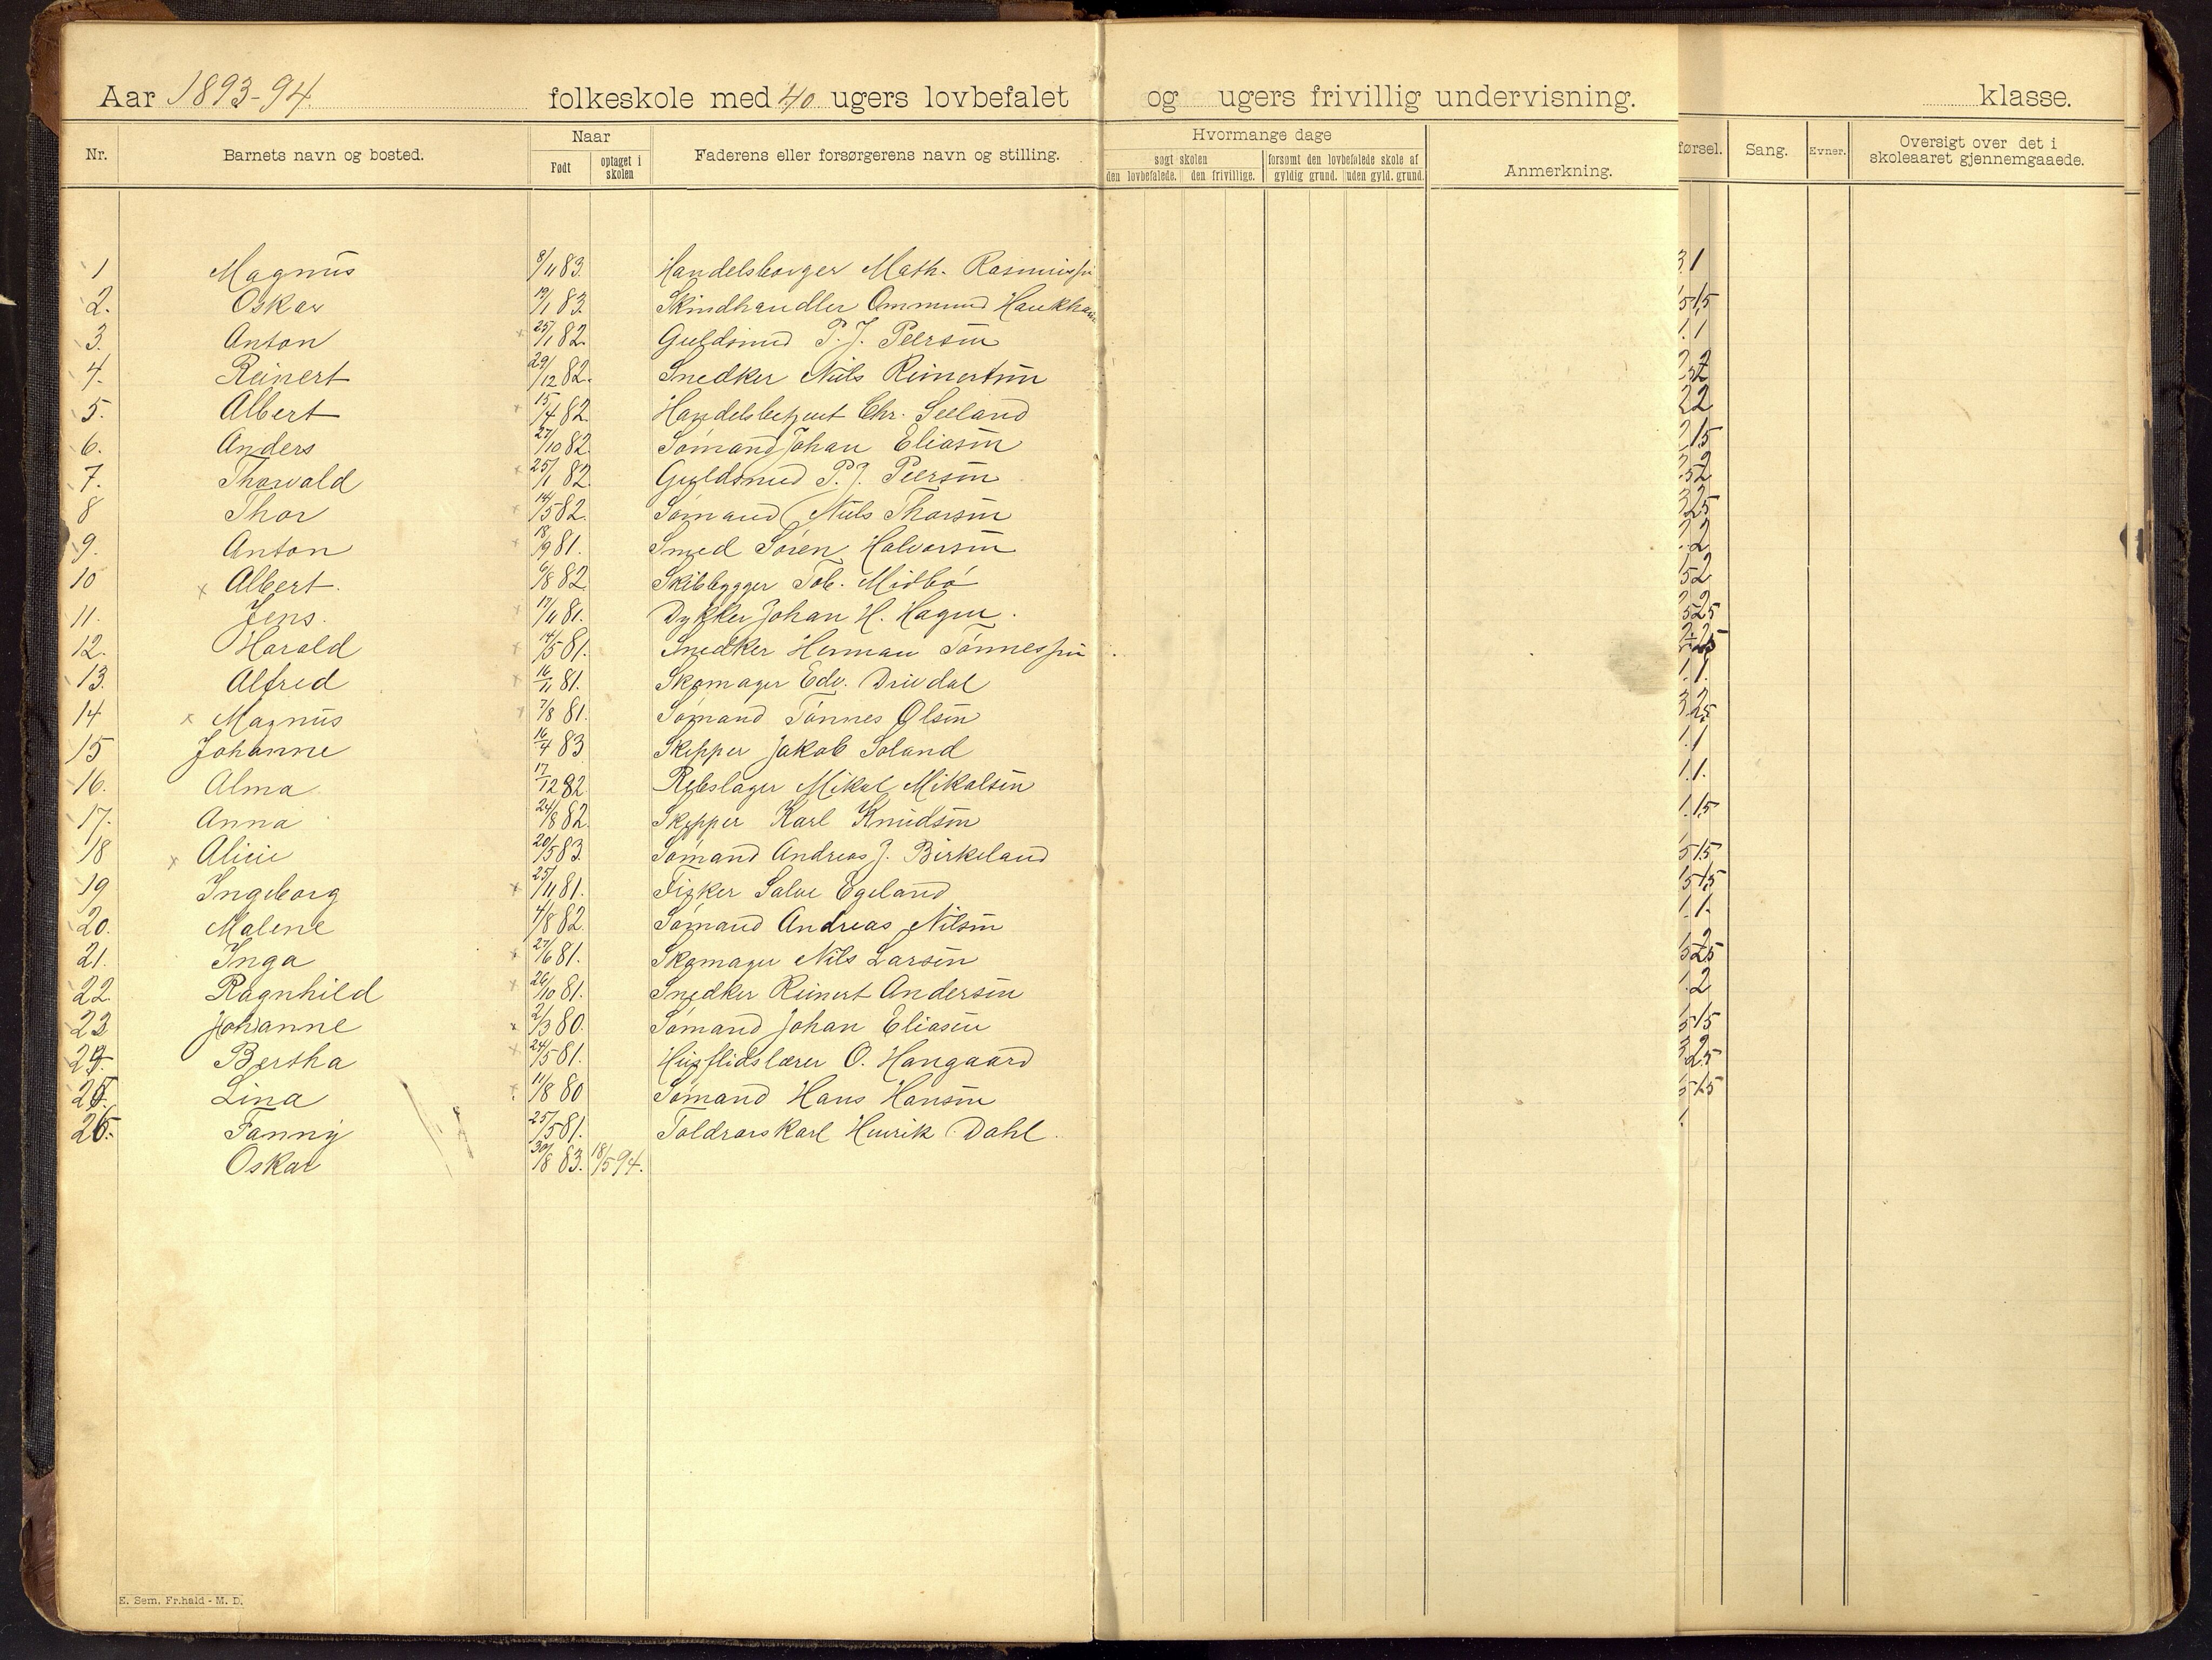 Aar 1893-94. folkeskole med 40 ugers lovbefalet og ugers frivillig undervisning. klasse.
Nr. Barnets navn og bosted. Naar Født optaget i skolen Faderens eller forsørgerens navn og stilling. Hvormange dage søgt skolen den lovbefalede. den frivillige. forsømt den lovbefalede skole af gyldig grund. uden gyld. grund. Anmerkning. førsel. Sang. Evner. Oversigt over det i skoleaaret gjennemgaaede.
1 Magnus 8/11 83. Handelsborger Math. Rasmussen 3 1
2. Oskar 19/1 83. Skindhandler Ommund Haukham 15 1,5
3. Anton × 25/1 82. Guldsmed P. J. Peersen 1. 1
4. Reinert 29/12 82. Snedker Niels Reinertsen
5. Albert × 15/4 82. Handelsbetjent Chr. Seeland 2 2
6. Anders 27/10 82. Sømand Johan Eliasen 2 1,5
7. Thorvald × 25/1 82. Guldsmed P. J. Peersen
8 Thor × 14/5 82. Sømand Niels Thorsen
9. Anton × 18/9 81. Smed Søren Halvorsen
10 × Albert. 6/8 82 Skibbygger Tob. Midbø
11. Jens. × 17/11 81. Dykker Johan H. Hagen.
12. Harald × 14/5 81. Snedker Herman Tønnessen
13. Alfred × 16/11 81. Skomager Edv. Drivdal 1. 1.
14 × Magnus × 7/8 81. Sømand Tønnes Olsen
15 Johanne 16/4 83 Skipper Jakob Soland 1. 1
16. Alma 17/12 82. Rebslager Mikal Mikalsen 1. 1.
17. Anna 24/8 82. Skipper Karl Knudsen 1. 1,5
18 × Alicie 20/5 83. Sømand Andreas J. Birkeland 5 1,5
19 Ingeborg × 25/11 81. Fisker Salve Egeland 15 1,5
20. Malene 4/8 82. Sømand Andreas Nilsen 1. 1.
21. Inga × 27/6 81. Skomager Nils Larsen
22. Ragnhild × 26/10 81. Snedker Reinert Andersen 1. 2
23 Johanne × 2/3 80. Sømand Johan Eliasen 5 1,5
24. Bertha × 24/5 81. Husflidslærer O. Hangaard 3 2,5
25. Lina × 11/8 80 Sømand Hans Hansen 5 1,5
26. Fanny 25/5 81. Toldrorskarl Henrik Dahl. 1.
Oskar 30/8 83. 18/5 94.
E. Sem. Fr.hald - M. D.